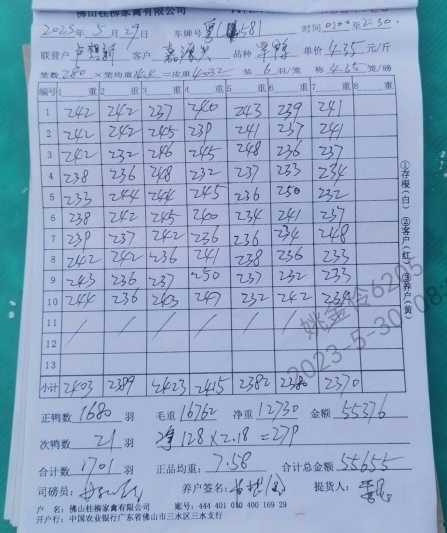 佛山桂柳家禽有限公司
2023年5月29日 车牌号 58 时间
联营户 客户 品种 单价 4.35 元/斤
笼数 280 ×笼均重 14.4 =皮重 4032 装 6 羽/笼 称 磅
编号 1 重 2 重 3 重 4 重 5 重 6 重 7 重 8 重
1 242 242 237 240 243 239 241
2 242 242 245 239 241 237 241
3 242 232 246 245 248 236 237
4 238 236 248 232 237 233 234
5 233 244 244 245 236 250 232
6 238 242 245 240 234 241 237
7 239 237 242 236 236 234 248
8 242 242 236 241 238 236 233
9 243 236 237 250 237 232 233
10 244 236 243 247 232 242
11
12
13
小计 2403 2389 2423 2415 2382 2380 2370
①存根(白) ②客户(红) ③养户(黄)
正鸭数 1680 羽 毛重 16762 净重 12730 金额 55376
次鸭数 21 羽 净 128×2.18=279
合计数 1701 羽 正品均重: 7.58 合计总金额 55655
司磅员: 养户签名: 提货人:
户 名: 佛山桂柳家禽有限公司 账号: 444 401 010 400 169 29
开户行: 中国农业银行广东省佛山市三水区三水支行
姚金伶6203
2023-5-30 08